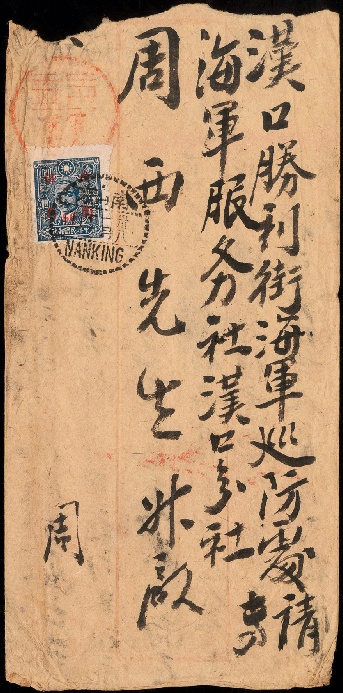 漢口勝利街海軍巡防處請
海軍服务社漢口分社
周西先生
啟
周
NANKING